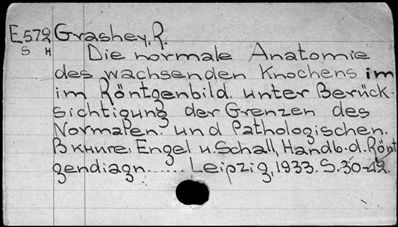 E572 Grashey, R.
S H Die normale Anatomie
des wachsenden Knochens im
im Röntgenbild unter Berück-
sichtigung der Grenzen des
Normalen und Pathologischen.
В книге: Engel u. Schall, Handb. d. Rönt
gendiagn...... Leipzig, 1933. S. 30-42.